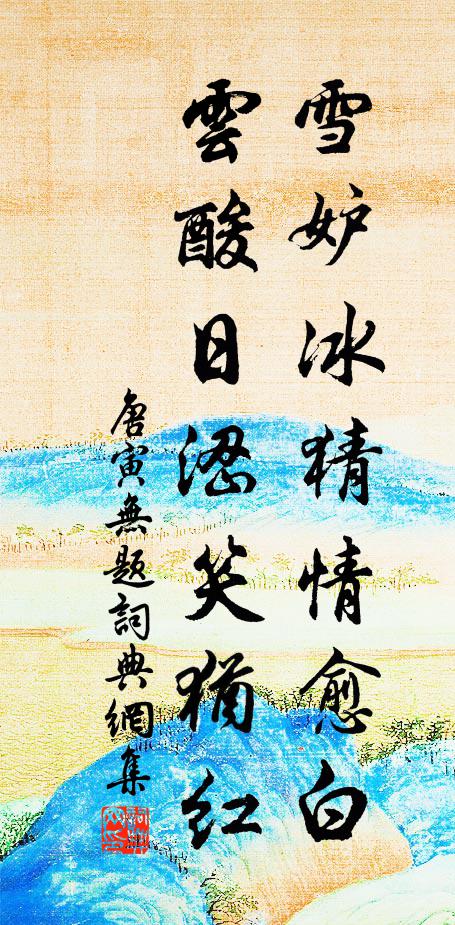 雪妒冰猜情愈白
雲酸日澀笑猶紅
唐寅無題詞典網集